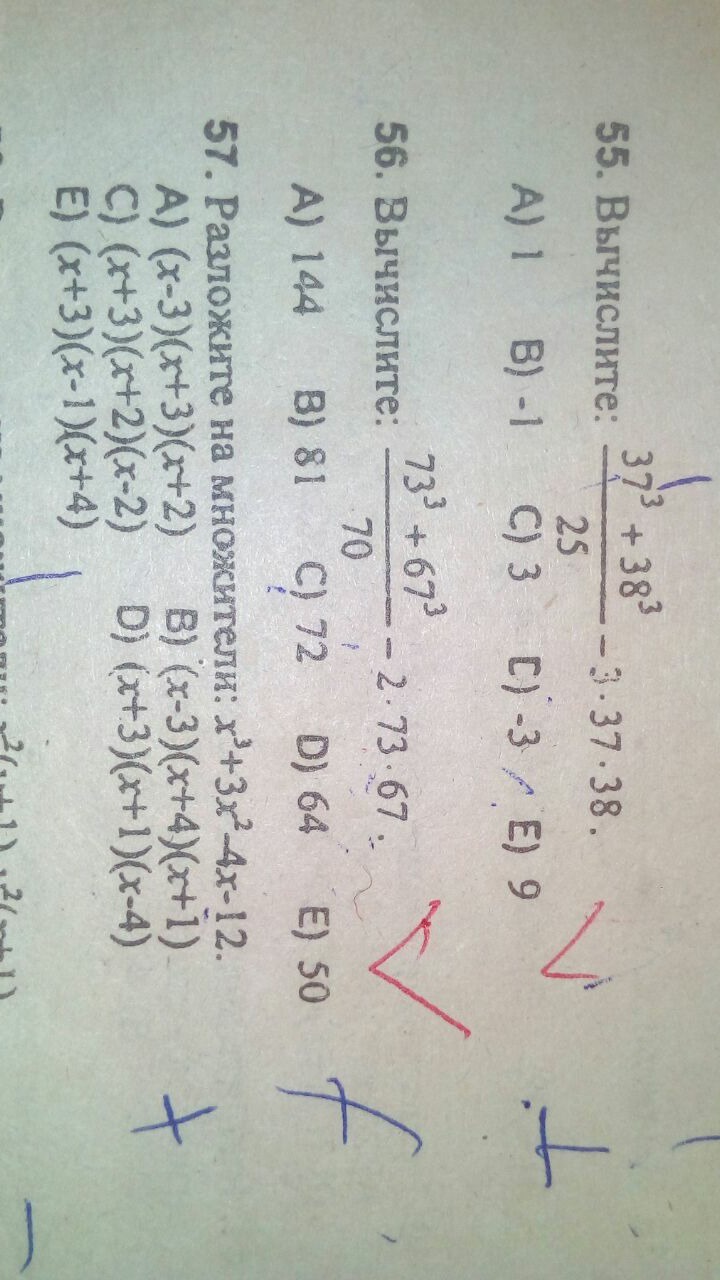 55. Вычислите: 37³ + 38³ / 25 − 3·37·38.
A) 1 B) -1 C) 3 D) -3 E) 9
56. Вычислите: 73³ + 67³ / 70 − 2·73·67.
A) 144 B) 81 C) 72 D) 64 E) 50
57. Разложите на множители: x³+3x²-4x-12.
A) (x-3)(x+3)(x+2) B) (x-3)(x+4)(x+1)
C) (x+3)(x+2)(x-2) D) (x+3)(x+1)(x-4)
E) (x+3)(x-1)(x+4)